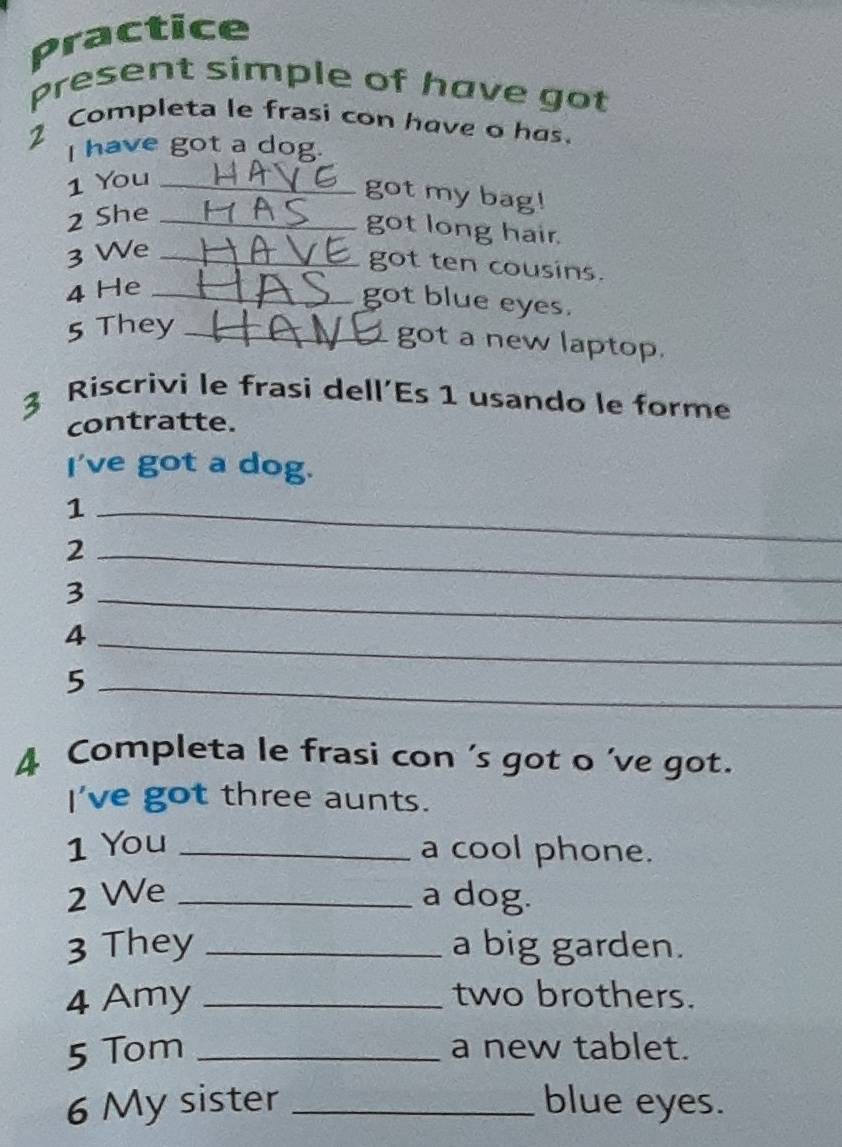 Practice
Present simple of have got
2 Completa le frasi con have o has.
I have got a dog.
1 You HAVE got my bag!
2 She HAS got long hair.
3 We HAVE got ten cousins.
4 He HAS got blue eyes.
5 They HAVE got a new laptop.
3 Riscrivi le frasi dell'Es 1 usando le forme
contratte.
I've got a dog.
1
2
3
4
5
4 Completa le frasi con 's got o 've got.
I've got three aunts.
1 You ____________ a cool phone.
2 We ____________ a dog.
3 They ____________ a big garden.
4 Amy ____________ two brothers.
5 Tom ____________ a new tablet.
6 My sister ____________ blue eyes.